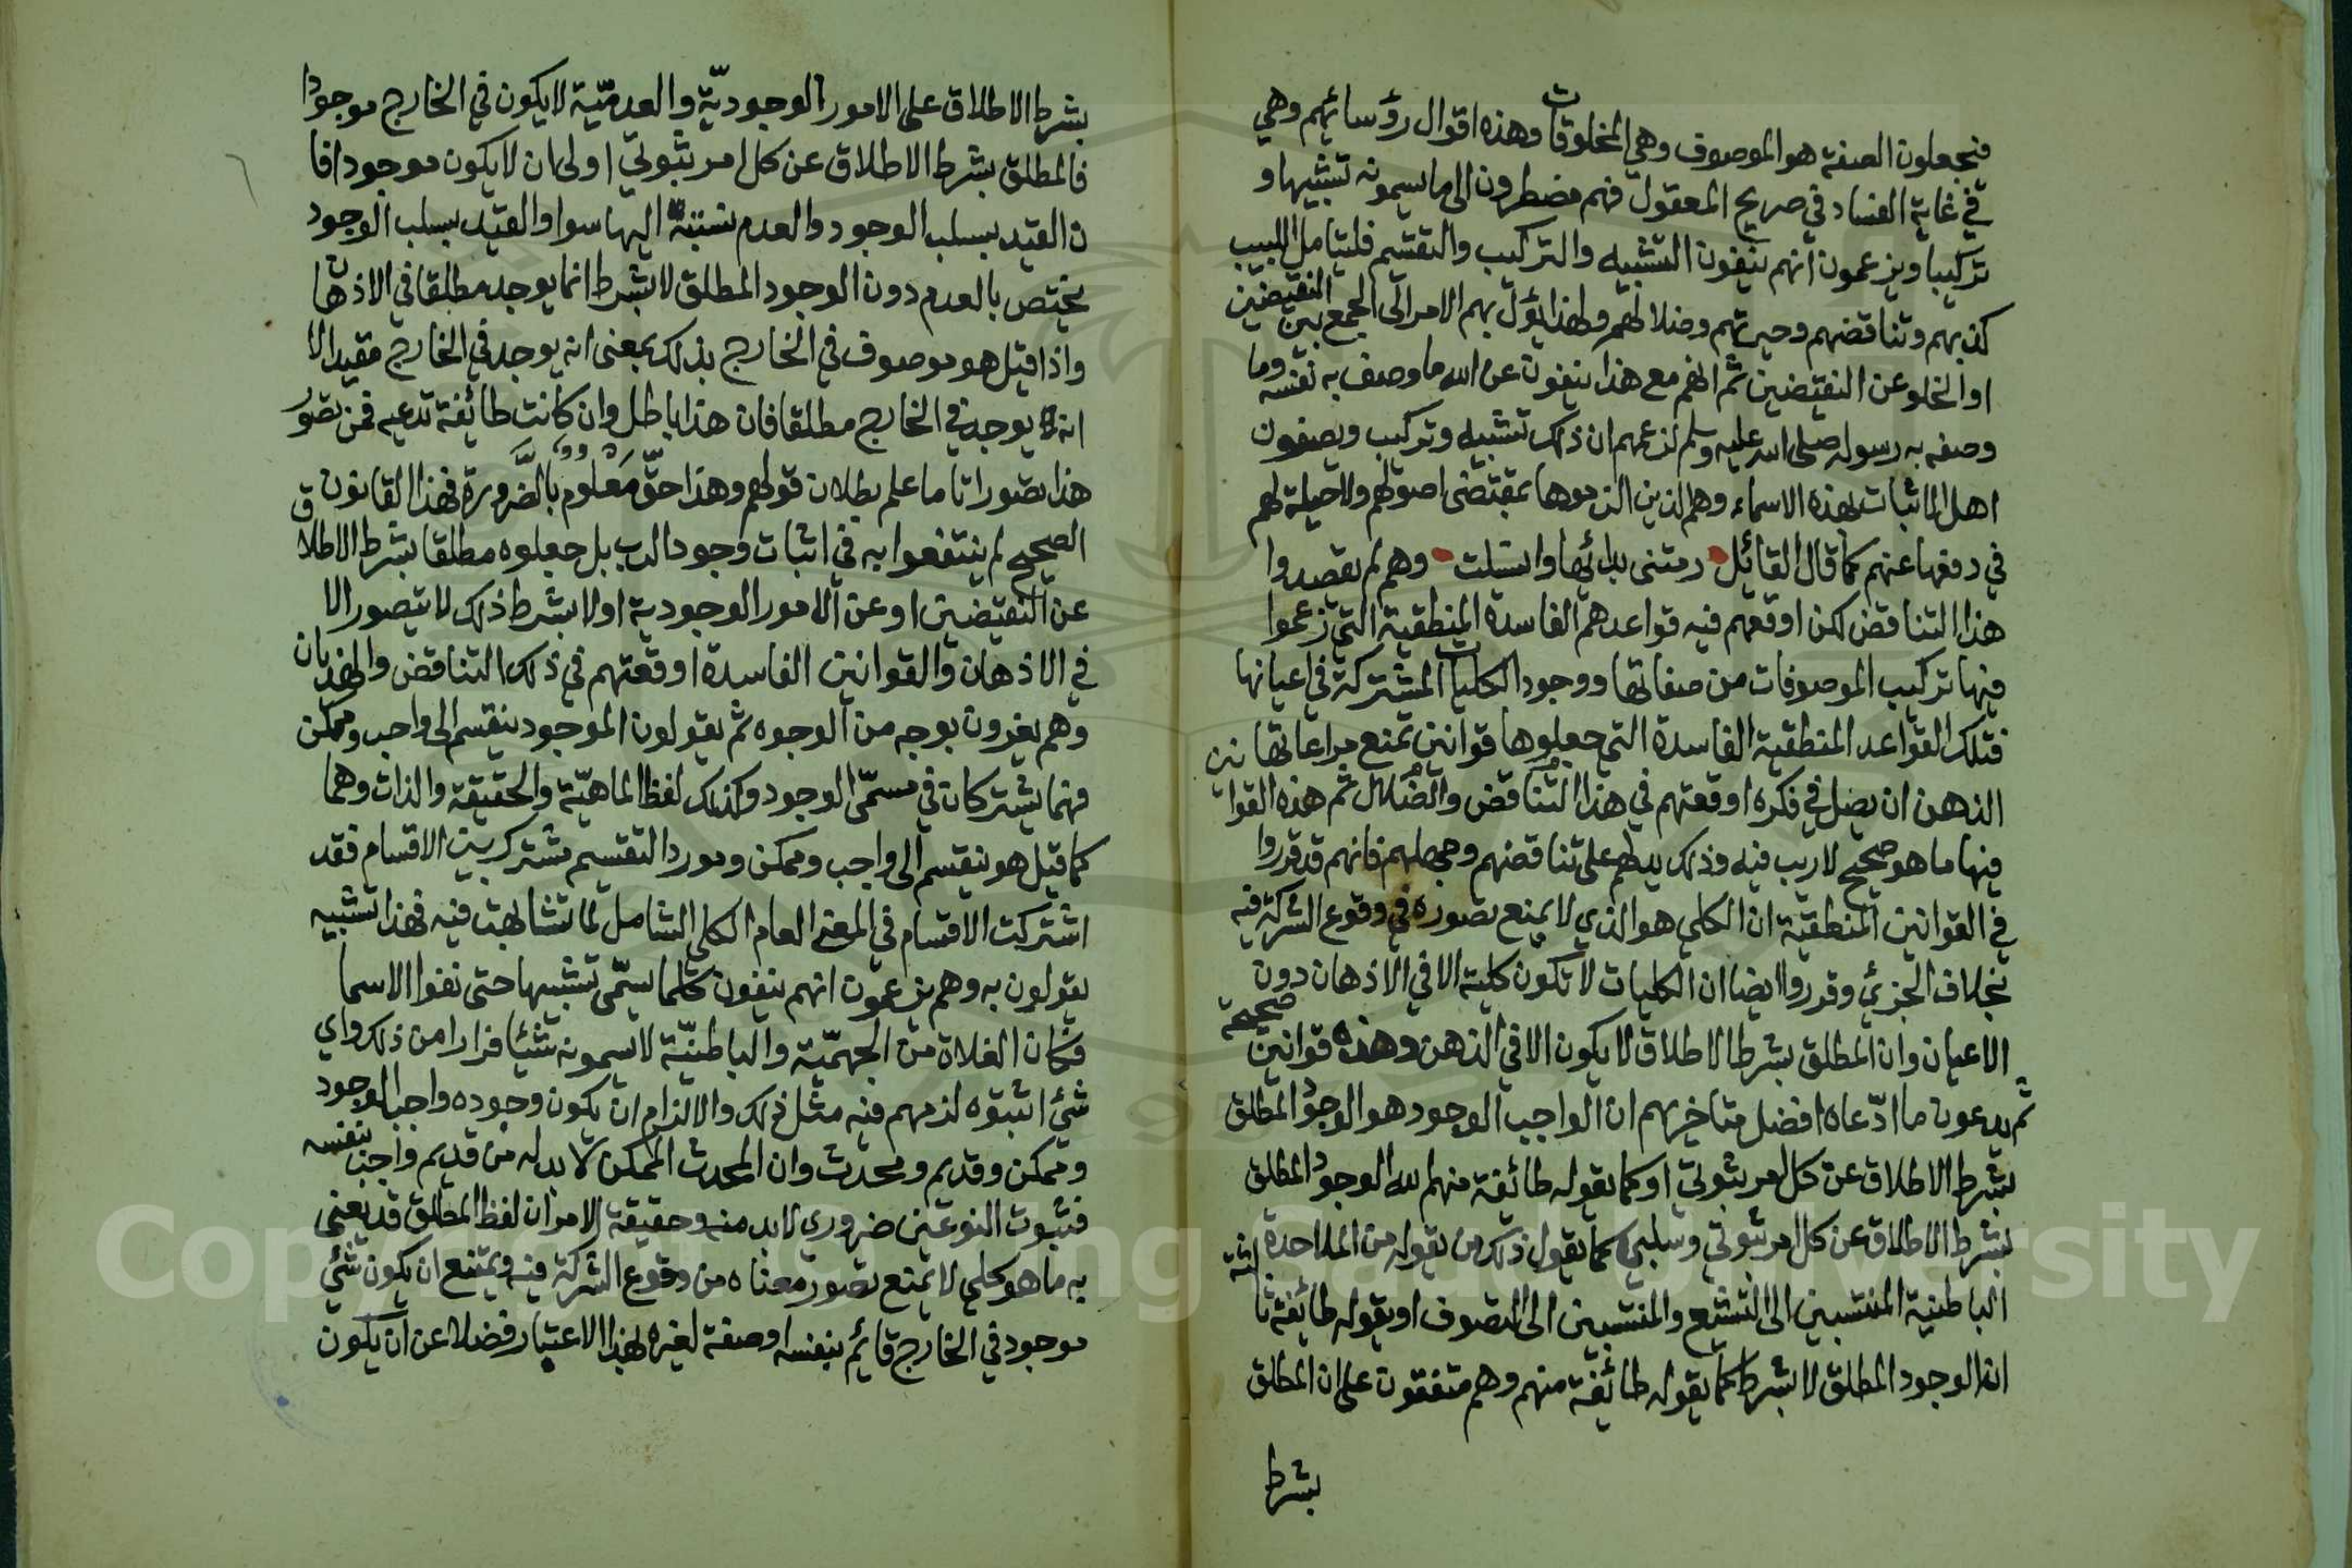 فيجعلون الصفة هو الموصوف وهي المخلوقات وهذه اقوال رؤسائهم وهي
في غاية الفساد في صريح المعقول فهم مضطرون الى ما يسمونه تشبيها و
تركيبا ويزعمون انهم ينفون التشبيه والتركيب والتقسيم فليتامل اللبيب
كذبهم وتناقضهم وحيرتهم وضلالهم ولهذا يؤل بهم الامر الى الجمع بين النقيضين
او الخلو عن النقيضين ثم انهم مع هذا ينفون عن الله ما وصف به نفسه وما
وصفه به رسوله صلى الله عليه وسلم لزعمهم ان ذلك تشبيه وتركيب ويصفون
اهل الاثبات بهذه الاسماء وهم الذين الزموها بمقتضى اصولهم ولا حيلة لهم
في دفعها عنهم كما قال القائل رمتني بدائها وانسلت وهم لم يقصدوا
هذا التناقض لكن اوقعهم فيه قواعدهم الفاسدة المنطقية التي زعموا
فيها تركيب الموصوفات من صفاتها ووجود الكليات المشتركة في اعيانها
فتلك القواعد المنطقية الفاسدة التي جعلوها قوانين تمنع مراعاتها
الذهن ان يضل في فكره اوقعتهم في هذا التناقض والضلال ثم هذه القوانين
فيها ما هو صحيح لا ريب فيه وذلك يدلهم على تناقضهم وجهلهم فانهم قد قرروا
في القوانين المنطقية ان الكلي هو الذي لا يمنع تصوره في وقوع الشركة فيه
بخلاف الجزئي وقرروا ايضا ان الكليات لا تكون كلية الا في الاذهان دون
الاعيان وان المطلق بشرط الاطلاق لا يكون الا في الذهن وهذه قوانين صحيحة
ثم يدعون ما ادّعاه افضل متاخريهم ان الواجب الوجود هو الوجود المطلق
بشرط الاطلاق عن كل امر ثبوتي او كما يقوله طائفة منهم انه الوجود المطلق
بشرط الاطلاق عن كل امر ثبوتي وسلبي كما يقول ذلك من يقوله من الملاحدة
الباطنية المنتسبين الى التشيع والمنتسبين الى التصوف او يقوله طائفة ثالثة
انه الوجود المطلق لا بشرط كما يقوله طائفة منهم وهم متفقون على ان المطلق
بشرط
بشرط الاطلاق على الامور الوجوديّة والعدميّة لا يكون في الخارج موجودا
فالمطلق بشرط الاطلاق عن كل امر ثبوتي اولى ان لا يكون موجودا فا
ن القيد بسلب الوجود والعدم نسبته اليها سوا والقيد بسلب الوجود
يختص بالعدم دون الوجود المطلق لا بشرط انما يوجد مطلقا في الاذهان
واذا قيل هو موصوف في الخارج بذلك بمعنى انه يوجد في الخارج مقيدا لا
انه يوجد في الخارج مطلقا فان هذا باطل وان كانت طائفة تدعيه فمن تصور
هذا تصورا تاما علم بطلان قولهم وهذا حقّ معلوم بالضَّرورة فهذا القانون
الصحيح لم ينتفعوا به في اثبات وجود الرب بل جعلوه مطلقا بشرط الاطلاق
عن النقيضين او عن الامور الوجودية او لا بشرط ذلك لا يتصور الا
في الاذهان والقوانين الفاسدة اوقعتهم في ذلك التناقض والهذيان
وهم يفرون بوجه من الوجوه ثم يقولون الموجود ينقسم الى واجب وممكن
فهما يشتركان في مسمّى الوجود وكذلك لفظ الماهيّة والحقيقة والذات وهما
كما قيل هو ينقسم الى واجب وممكن ومورد التقسيم مشترك بين الاقسام فقد
اشتركت الاقسام في المعنى العام الكلي الشامل لما تشابهت فيه فهذا تشبيه
يقولون به وهم يزعمون انهم ينفون كلما يسمّى تشبيها حتى نفوا الاسما
فكان الغلاة من الجهميّة والباطنيّة لا يسمونه شيئا فرارا من ذلك واي
شيئ اثبتوه لزمهم فيه مثل ذلك والا لزم ان يكون وجوده واجب الوجود
وممكن وقديم ومحدث وان المحدث الممكن لا بد له من قديم واجب بنفسه
فثبوت النوعين ضروري لا بد منه وحقيقة الامر ان لفظ المطلق قد يعني
به ما هو كلي لا يمنع تصور معناه من وقوع الشركة فيه ويمتنع ان يكون شيئ
موجود في الخارج قائم بنفسه او صفة لغيره بهذا الاعتبار فضلا عن ان يكون
Copyright © King Saud University